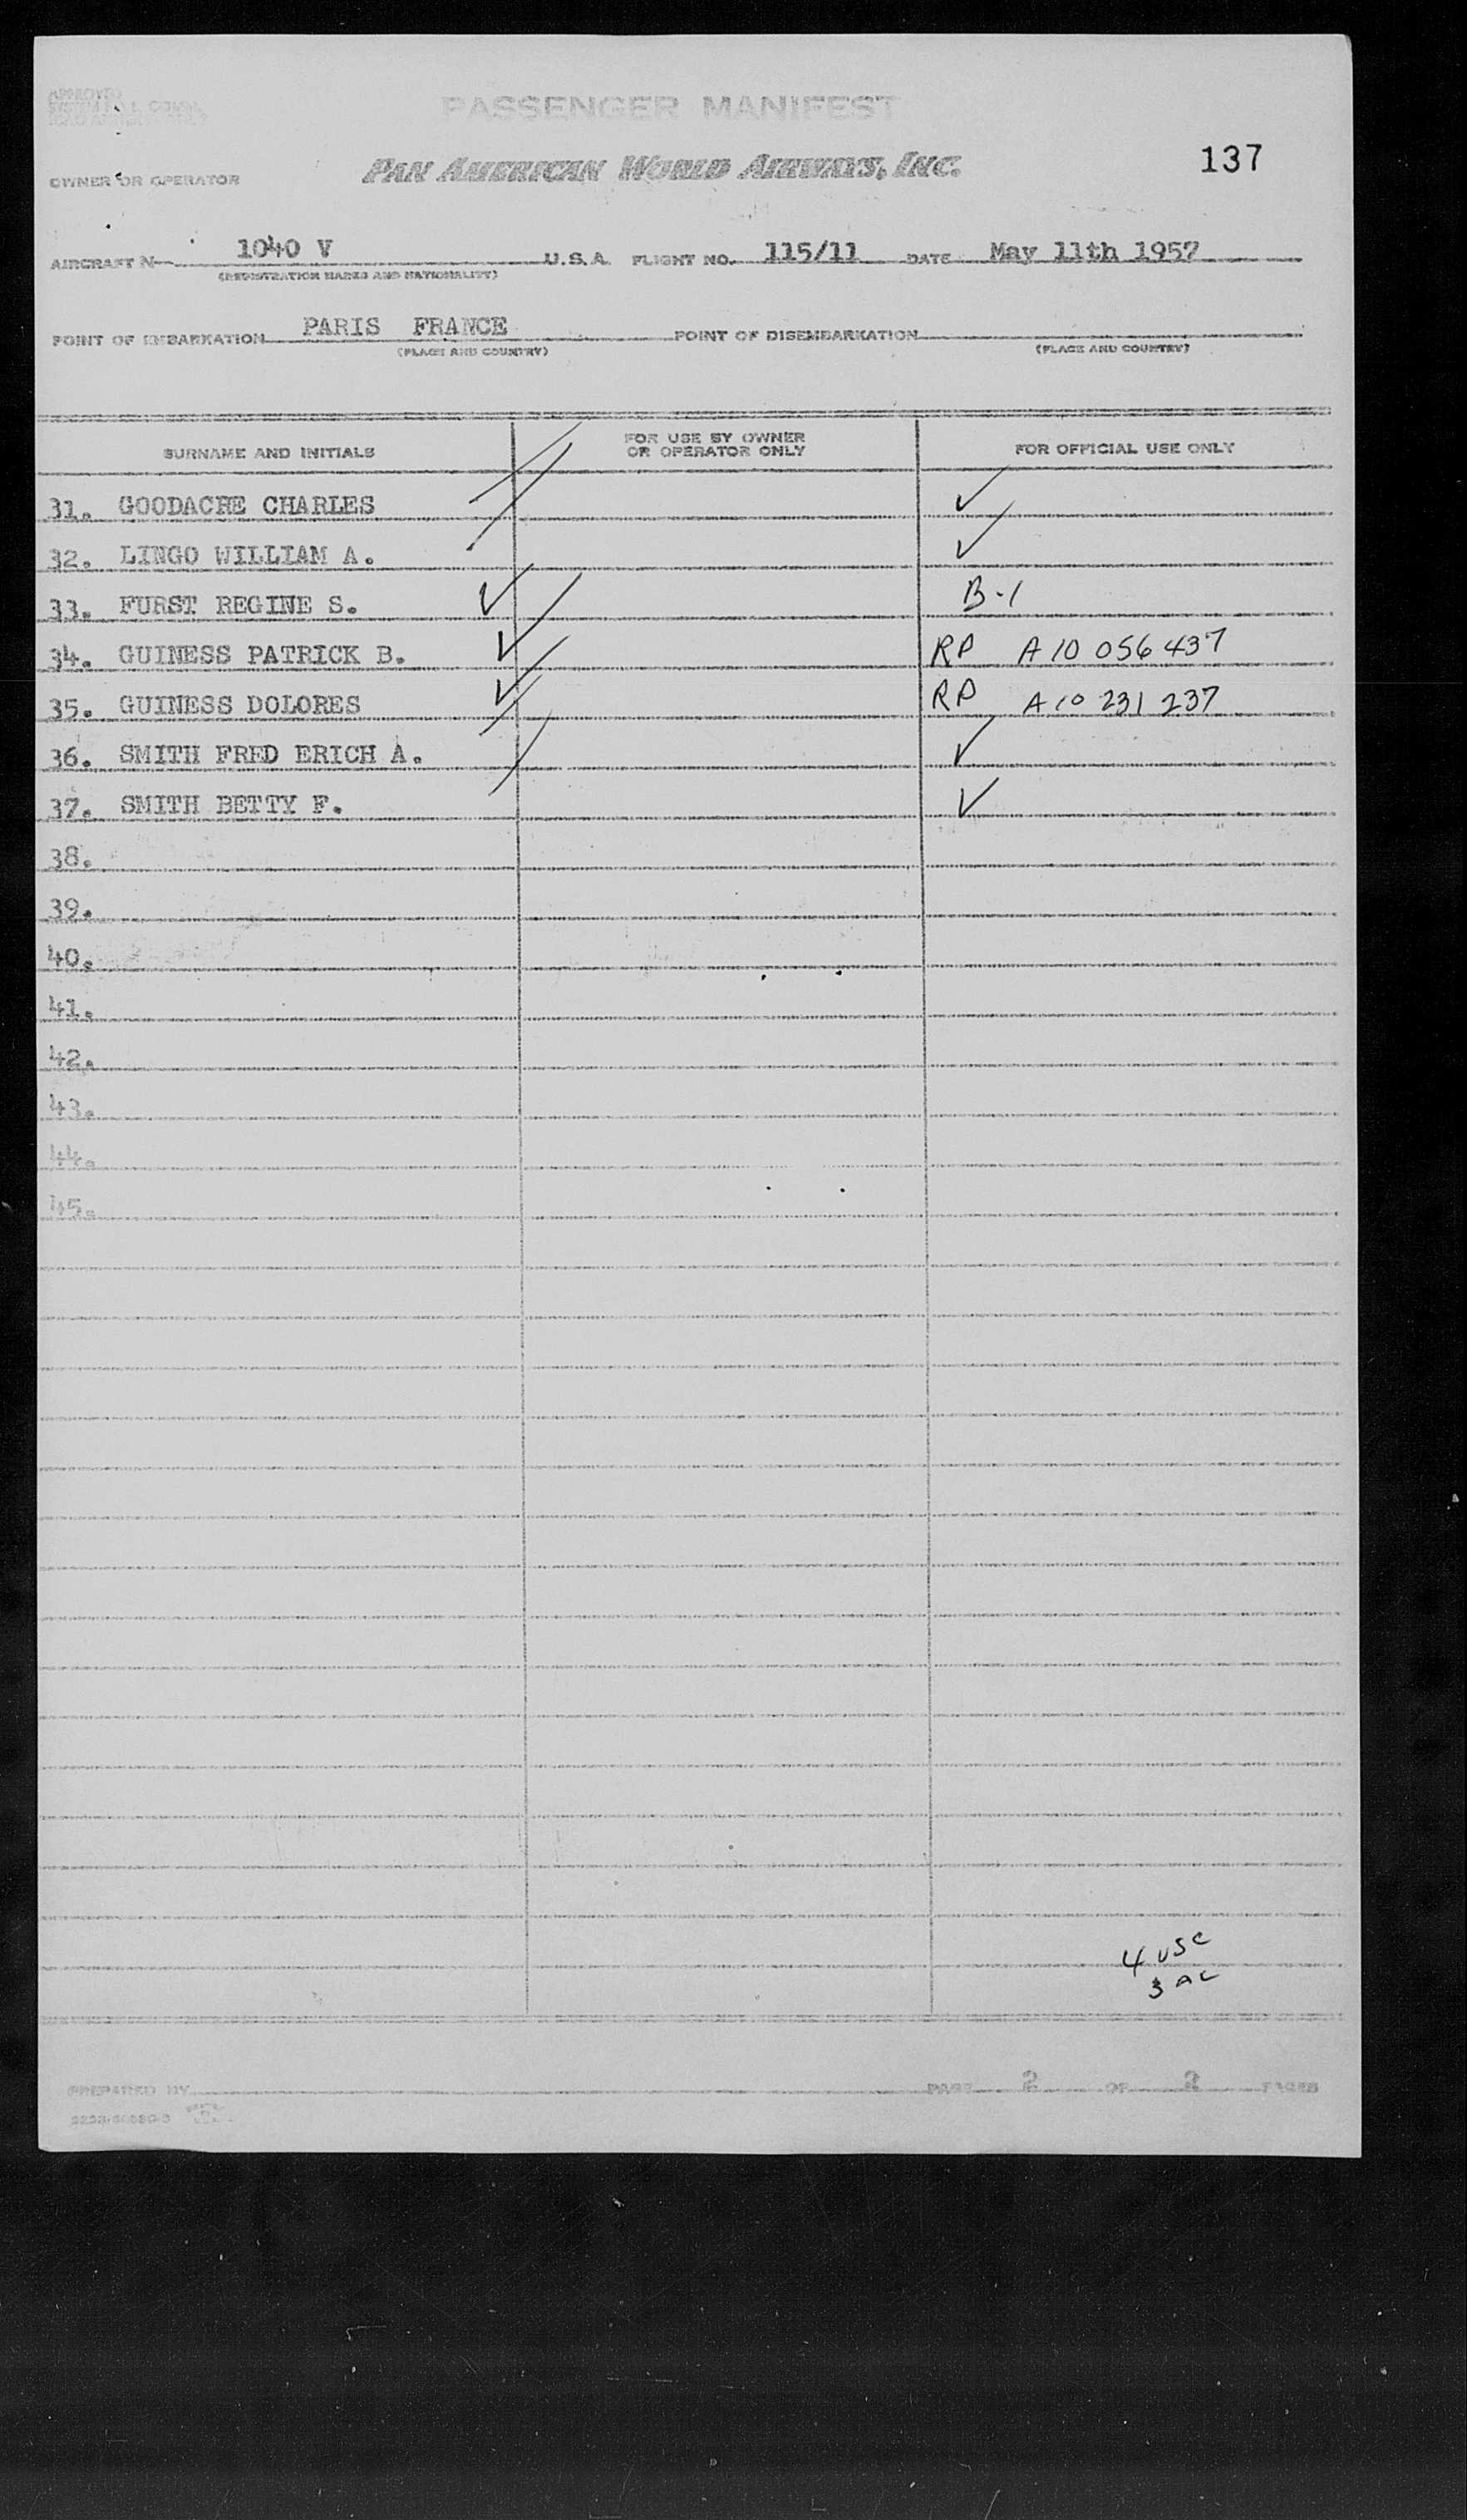 APPROVED
PASSENGER MANIFEST
137
OWNER OR OPERATOR PAN AMERICAN WORLD AIRWAYS, INC.
AIRCRAFT N 1040 V U.S.A. FLIGHT NO. 115/11 DATE May 11th 1957
(REGISTRATION MARKS AND NATIONALITY)
POINT OF EMBARKATION PARIS FRANCE POINT OF DISEMBARKATION
(PLACE AND COUNTRY) (PLACE AND COUNTRY)
SURNAME AND INITIALS FOR USE BY OWNER OR OPERATOR ONLY FOR OFFICIAL USE ONLY
31. GOODACRE CHARLES ✓
32. LINGO WILLIAM A. ✓
33. FURST REGINE S. ✓ B-1
34. GUINESS PATRICK B. ✓ RP A10 056 437
35. GUINESS DOLORES ✓ RP A10 231 237
36. SMITH FRED ERICH A. ✓
37. SMITH BETTY F. ✓
38.
39.
40.
41.
42.
43.
44.
45.
4 USC
3 AC
PREPARED BY PAGE 2 OF 2 PAGES